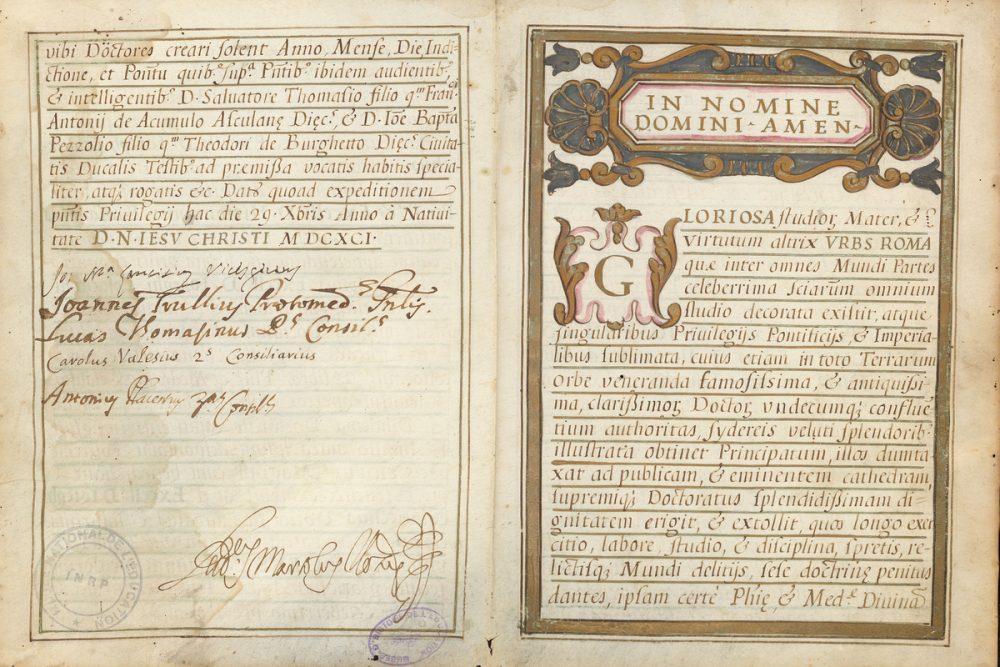 vibi Doctores creari solent Anno, Mense, Die, Indi-
ctione, et Pontu quib.⁹ sup.ª Pñtib.⁹ ibidem audientib.⁹
& intelligentib.⁹ D. Salvatore Thomasio filio q.ᵐ Fran.
Antonij de Acumulo Asculanę Dięc.⁹, & D. Ioẽ Baptã
Pezzolio filio q.ᵐ Theodori de Burghetto Dięc.⁹ Civita-
tis Ducalis Testib.⁹ ad premissa vocatis habitis specia-
liter, atq; rogatis &c. Dat⁹ quoad expeditionem
pñtis Privilegij hac die 29. Xbris Anno à Nativi-
tate D. N. IESV CHRISTI M DCXCI.
Joannes Trullius Protomed.⁹ Gnlis.
Lucas Thomasinus P.⁹ Consil.⁹
Carolus Valesius 2.⁹ Consiliarius
Antonius
NATIONAL DE L'EDUCATION
INRP
IN NOMINE
DOMINI AMEN.
GLORIOSA studior̃ Mater, &
virtutum altrix VRBS ROMA
quæ inter omnes Mundi Partes
celeberrima sciarum omnium
studio decorata existit, atque
singularibus Privilegijs Pontificijs, & Imperia-
libus sublimata, cuius etiam in toto Terrarum
orbe veneranda famosissima, & antiquissi-
ma, clarissimor̃ Doctor̃ vndecumq; confluẽ
tium authoritas, sydereis veluti splendorib.⁹
illustrata obtinet Principatum, illos dumta-
xat ad publicam, & eminentem cathedram,
supremiq; Doctoratus splendidissimam di-
gnitatem erigit, & extollit, quos longo exer
citio, labore, studio, & disciplina, spretis, re-
lictisq; Mundi delitijs, sese doctrinę penitus
dantes, ipsam certè Phię, & Med.ᵉ Divina